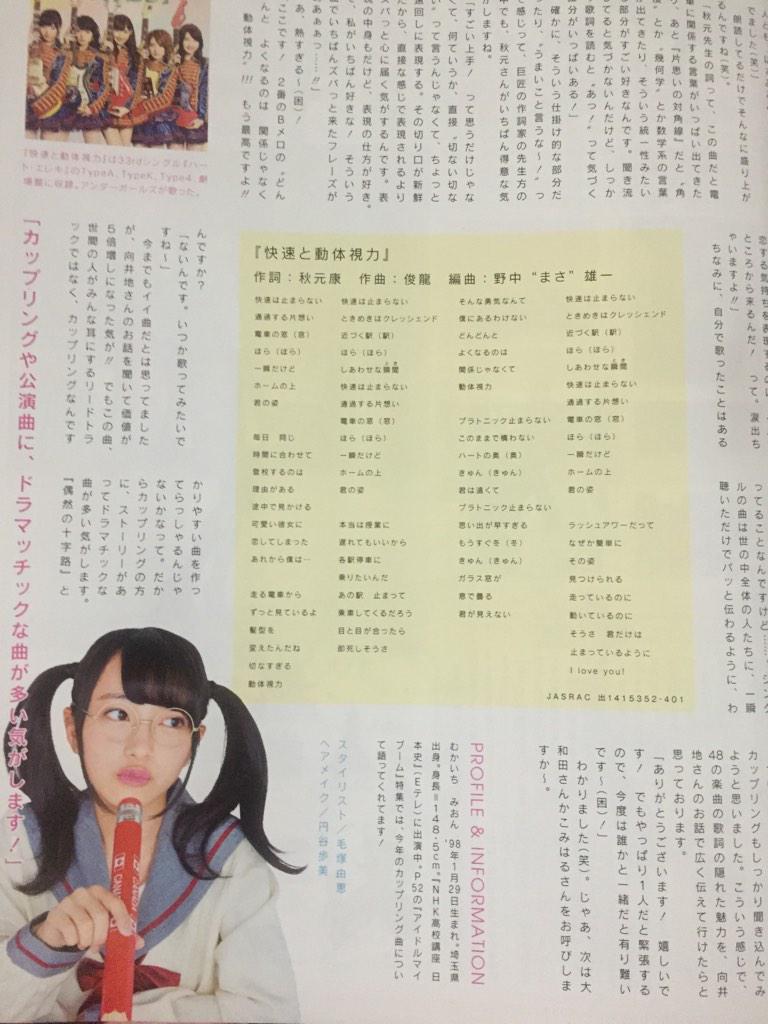 でました（笑）。
朗読してるだけでそんなに盛り上が
るんですね（笑）。
「秋元先生の詞って、この曲だと電
車に関する言葉がいっぱい出てきた
り、あと『片思いの対角線』だと〝角
度〟とか〝幾何学〟とか数学系の言葉
が出てきたり、そういう統一性みたい
な部分がすごい好きなんです。聞き流
してると気づかないんだけど、しっか
り歌詞を読むと『あっ！』って気づく
部分がいっぱいある！」
確かに、そういう仕掛け的な部分だ
ったり、〝うまいこと言うな〜！〟っ
て感じって、巨匠の作詞家の先生方の
中でも、秋元さんがいちばん得意な気
がしますね。
「すごい上手！　って思うだけじゃな
くて、何ていうか、直接〝切ない切な
い〟って言うんじゃなくて、ちょっと
遠回しに表現する。その切り口が新鮮
だから、直接な感じで表現されるより
スパっと心に届く気がするんです。表
現の中身もだけど、表現の仕方が好き。
で、私がいちばん好きな！　そういう
面でいちばんズバっと来たフレーズが
あぁぁっ……！！」
あ、熱すぎる〜（困）！
「ここです！　２番のＢメロの〝どん
どんと　よくなるのは　関係じゃなく
動体視力〟！！！　もう最高ですよ！！
『快速と動体視力』は33rdシングル『ハー
ト・エレキ』のTypeA、TypeK、Type4、劇
場盤に収録。アンダーガールズが歌った。
『快速と動体視力』
作詞：秋元康　作曲：俊龍　編曲：野中 “まさ” 雄一
快速は止まらない
通過する片想い
電車の窓（窓）
ほら（ほら）
一瞬だけど
ホームの上
君の姿
毎日　同じ
時間に合わせて
登校するのは
理由がある
途中で見かける
可愛い彼女に
恋してしまった
あれから僕は…
走る電車から
ずっと見ているよ
髪型を
変えたんだね
切なすぎる
動体視力
快速は止まらない
ときめきはクレッシェンド
近づく駅（駅）
ほら（ほら）
しあわせな瞬間
とき
快速は止まらない
通過する片想い
電車の窓（窓）
ほら（ほら）
一瞬だけど
ホームの上
君の姿
本当は授業に
遅れてもいいから
各駅停車に
乗りたいんだ
あの駅　止まって
乗車してくるだろう
目と目が合ったら
即死しそうさ
そんな勇気なんて
僕にあるわけない
どんどんと
よくなるのは
関係じゃなくて
動体視力
プラトニック止まらない
このままで構わない
ハートの奥（奥）
きゅん（きゅん）
君は遠くて
プラトニック止まらない
思い出が早すぎる
もうすぐ冬（冬）
きゅん（きゅん）
ガラス窓が
息で曇る
君が見えない
快速は止まらない
ときめきはクレッシェンド
近づく駅（駅）
ほら（ほら）
しあわせな瞬間
とき
快速は止まらない
通過する片想い
電車の窓（窓）
ほら（ほら）
一瞬だけど
ホームの上
君の姿
ラッシュアワーだって
なぜか簡単に
その姿
見つけられる
走っているのに
動いているのに
そうさ　君だけは
止まっているように
I love you!
JASRAC 出1415352-401
恋する気持ちを表現するのに
ところから来るんだ！　って。涙出ち
ゃいますよ！！」
ちなみに、自分で歌ったことはある
んですか？
「ないんです。いつか歌ってみたいで
すね〜」
今までもイイ曲だとは思ってました
が、向井地さんのお話を聞いて価値が
５倍増しになった気が！！　でもこの曲、
世間の人がみんな耳にするリードトラ
ックではなく、カップリングなんです
ってることなんですけど……、シング
ルの曲は世の中全体の人たちに、一瞬
聴いただけでパッと伝わるように、わ
かりやすい曲を作っ
てらっしゃるんじゃ
ないかなって。だか
らカップリングの方
に、ストーリーがあ
ってドラマチックな
曲が多い気がします。
『偶然の十字路』と
「カップリングや公演曲に、ドラマッチックな曲が多い気がします！」
カップリングもしっかり聞き込んでみ
ようと思いました。こういう感じで、
48の楽曲の歌詞の隠れた魅力を、向井
地さんのお話で広く伝えて行けたらと
思っております。
「ありがとうございます！　嬉しいで
す！　でもやっぱり１人だと緊張する
ので、今度は誰かと一緒だと有り難い
です〜（困）！」
わかりました（笑）。じゃあ、次は大
和田さんかこみはるさんをお呼びしま
すか〜。
PROFILE & INFORMATION
むかいち　みおん　’98年1月29日生まれ。埼玉県
出身。身長＝148・5cm。『NHK高校講座　日
本史』（Eテレ）に出演中。P52の『アイドルマイ
ブーム』特集では、今年のカップリング曲につい
て語ってくれてます！
スタイリスト／毛塚由恵
ヘアメイク／円谷歩美